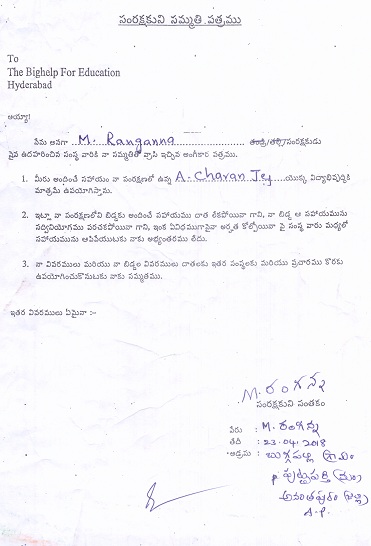 సంరక్షకుని సమ్మతి పత్రము
To
The Bighelp For Education
Hyderabad
అయ్యా!
నేను అనగా M. Ranganna తండ్రి/తల్లి/సంరక్షకుడు
పైన ఉదహరించిన సంస్థ వారికి నా సమ్మతితో వ్రాసి ఇచ్చిన అంగీకార పత్రము.
1. మీరు అందించే సహాయం నా సంరక్షణలో ఉన్న A. Charan Tej యొక్క విద్యాభివృద్ధికి
మాత్రమే ఉపయోగిస్తాను.
2. ఇట్లా నా సంరక్షణలోని బిడ్డకు అందించే సహాయము దాత లేకపోయినా గాని, నా బిడ్డ ఆ సహాయమును
సద్వినియోగము పరచకపోయినా గాని, ఇంక ఏవిధముగానైనా అర్హత కోల్పోయినా పై సంస్థ వారు మధ్యలో
సహాయమును ఆపివేయుటకు నాకు అభ్యంతరము లేదు.
3. నా వివరములు మరియు నా బిడ్డల వివరములు దాతలకు ఇతర సంస్థలకు మరియు ప్రచారము కొరకు
ఉపయోగించుకొనుటకు నాకు సమ్మతము.
ఇతర వివరములు ఏమైనా :-
M. రంగన్న
సంరక్షకుని సంతకం
పేరు : M. రంగన్న
తేది : 23.04.2018
అడ్రసు : బుగ్గపల్లి గ్రామం
పుట్టపర్తి (మం)
అనంతపురం (జిల్లా)
A.P.